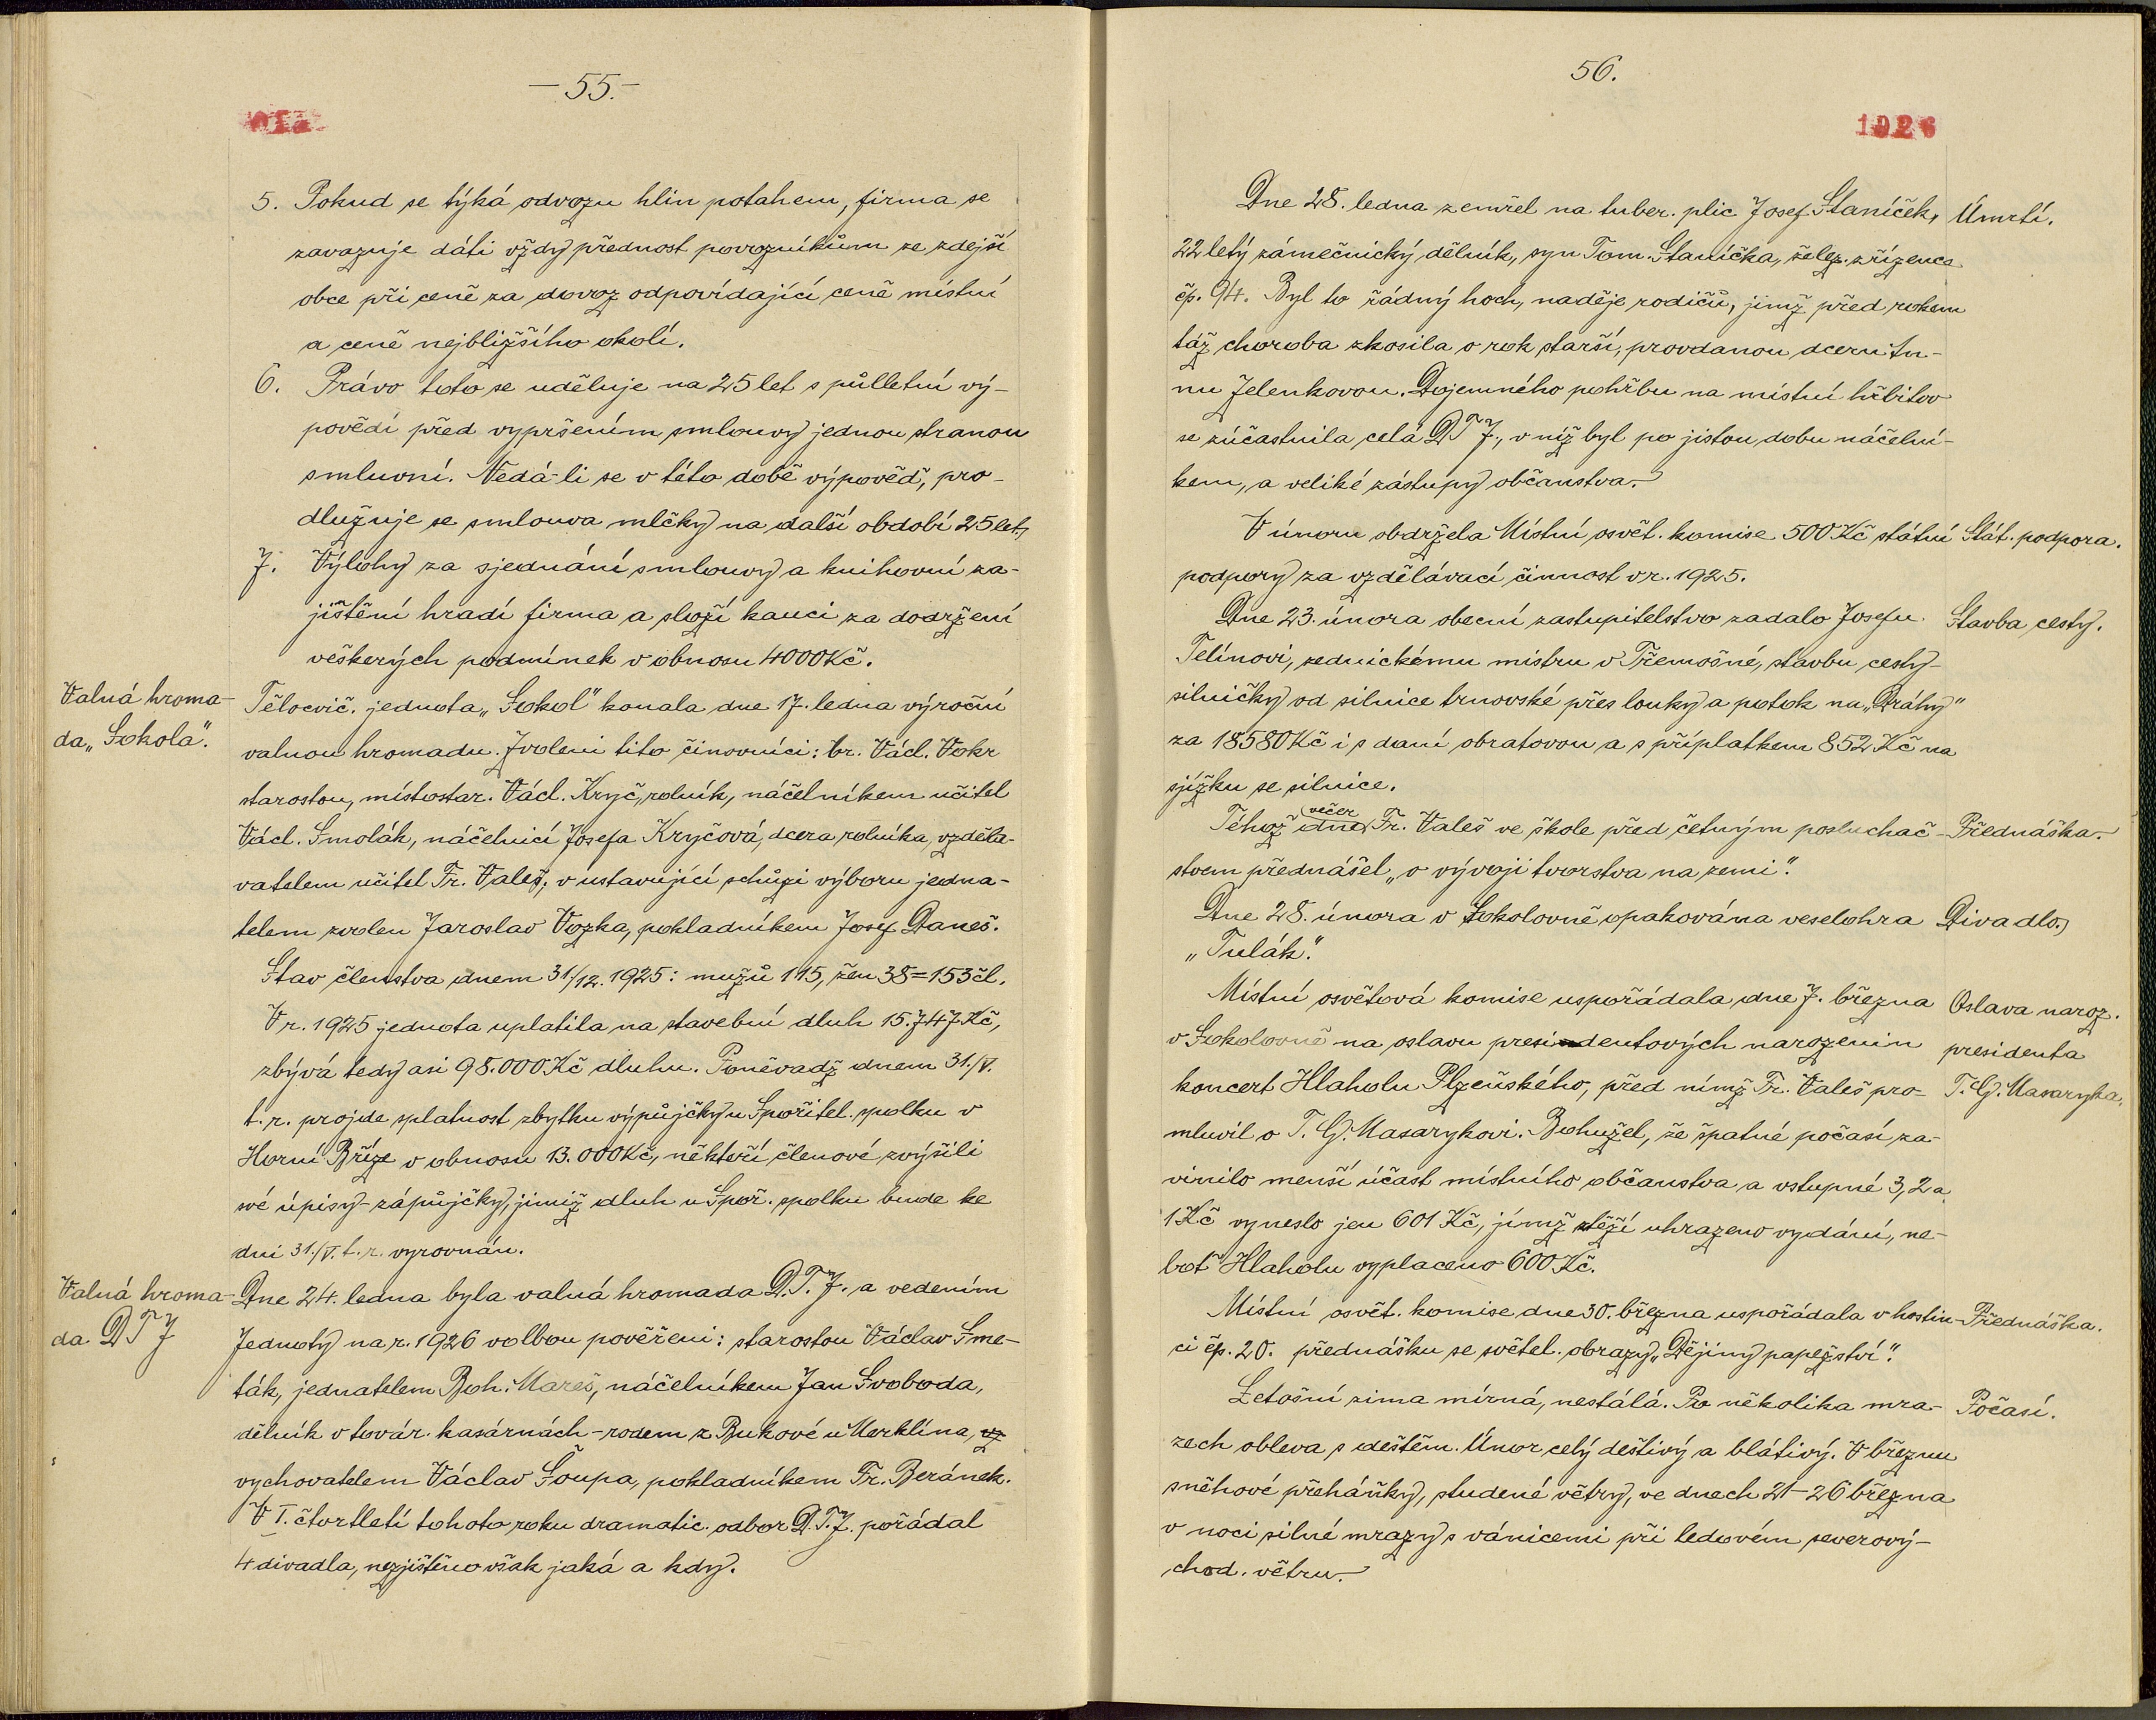 —55.—
5. Pokud se týká odvozu hlin potahem, firma se
zavazuje dáti vždy přednost povozníkům ze zdejší
obce při ceně za dovoz odpovídající ceně místní
a ceně nejbližšího okolí.
6. Právo toto se uděluje na 25 let s půlletní vý-
povědí před vypršením smlouvy jednou stranou
smluvní. Nedá-li se v této době výpověď, pro-
dlužuje se smlouva mlčky na další období 25 let.
7. Výlohy za sjednání smlouvy a knihovní za-
jištění hradí firma a složí kauci za dodržení
veškerých podmínek v obnosu 4000 Kč.
Valná hroma-
da „Sokola".
Tělocvič. jednota „Sokol" konala dne 17. ledna výroční
valnou hromadu. Zvoleni tito činovníci: br. Václ. Vokr
starostou, místostar. Václ. Kryč, rolník, náčelníkem učitel
Václ. Smolák, náčelnicí Josefa Kryčová, dcera rolníka, vzděla-
vatelem učitel Fr. Valeš; v ustavující schůzi výboru jedna-
telem zvolen Jaroslav Vozka, pokladníkem Josef Daneš.
Stav členstva dnem 31./12. 1925: mužů 115, žen 38 = 153 čl.
V r. 1925 jednota uplatila na stavební dluh 15.747 Kč,
zbývá tedy asi 98.000 Kč dluhu. Poněvadž dnem 31./V.
t. r. projde splatnost zbytku výpůjčky u Spořitel. spolku v
Horní Bříze v obnosu 13.000 Kč, někteří členové zvýšili
své úpisy-zápůjčky, jimiž dluh u Spoř. spolku bude ke
dni 31./V. t. r. vyrovnán.
Valná hroma-
da DTJ
Dne 24. ledna byla valná hromada D.T.J. a vedením
Jednoty na r. 1926 volbou pověřeni: starostou Václav Sme-
ták, jednatelem Boh. Mareš, náčelníkem Jan Svoboda,
dělník v továr. kasárnách - rodem z Bukové u Merklína, vz
vychovatelem Václav Šoupa, pokladníkem Fr. Beránek.
V I. čtvrtletí tohoto roku dramatic. odbor D.T.J. pořádal
4 divadla, nezjištěno však jaká a kdy.
56.
1926
Dne 28. ledna zemřel na tuber. plic Josef Staníček, Úmrtí.
22 letý zámečnický dělník, syn Tom. Staníčka, želez. zřízence
čp. 94. Byl to řádný hoch, naděje rodičů, jimž před rokem
táž choroba zkosila o rok starší, provdanou dceru An-
nu Jelenkovou. Dojemného pohřbu na místní hřbitov
se zúčastnila celá DTJ., v níž byl po jistou dobu náčelní-
kem, a veliké zástupy občanstva.
V únoru obdržela Místní osvět. komise 500 Kč státní Stát. podpora.
podpory za vzdělávací činnost v r. 1925.
Dne 23. února obecní zastupitelstvo zadalo Josefu Stavba cesty.
Telínovi, zednickému mistru v Třemošné, stavbu cesty-
silničky od silnice trnovské přes louky a potok na „Dráhy"
za 18580 Kč i s daní obratovou a s příplatkem 852 Kč na
sjížku se silnice.
večer
Téhož dne Fr. Valeš ve škole před četným posluchač- Přednáška.
stvem přednášel „o vývoji tvorstva na zemi".
Dne 28. února v Sokolovně opakována veselohra Divadlo.
„Tulák."
Místní osvětová komise uspořádala dne 7. března Oslava naroz.
v Sokolovně na oslavu presidentových narozenin presidenta
koncert Hlaholu Plzeňského, před nímž Fr. Valeš pro- T. G. Masaryka.
mluvil o T. G. Masarykovi. Bohužel, že špatné počasí za-
vinilo menší účast místního občanstva a vstupné 3, 2 a
1 Kč vyneslo jen 601 Kč, jímž stěží uhrazeno vydání, ne-
boť Hlaholu vyplaceno 600 Kč.
Místní osvět. komise dne 30. března uspořádala v hostin- Přednáška.
ci čp. 20. přednášku se světel. obrazy „Dějiny papežství".
Letošní zima mírná, nestálá. Po několika mra- Počasí.
zech obleva s deštěm. Únor celý deštivý a blátivý. V březnu
sněhové přeháňky, studené větry, ve dnech 21-26 března
v noci silné mrazy s vánicemi při ledovém severový-
chod. větru.